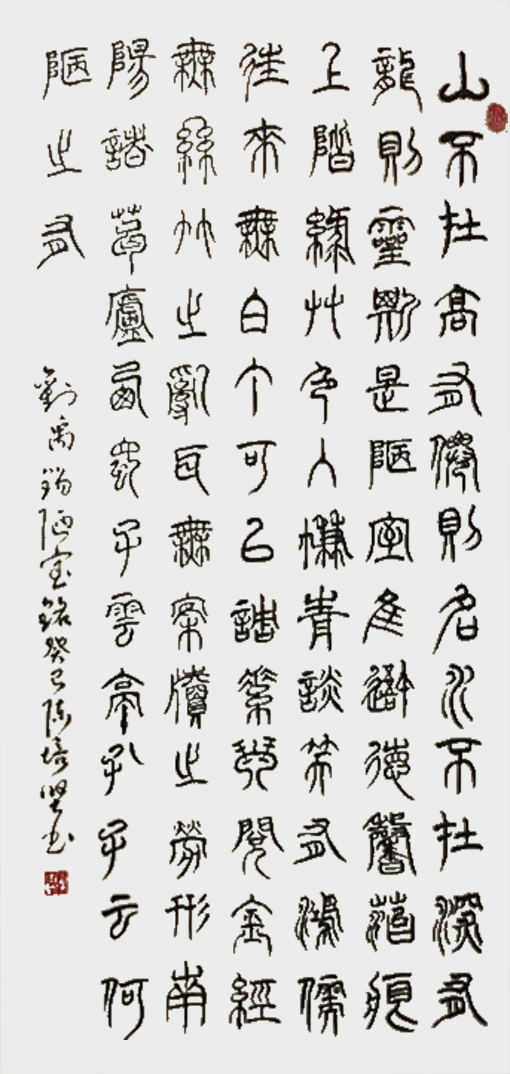 山不在高有僊則名水不在深有
龍則靈斯是陋室隹吾德馨菭痕
上階綠艸色入簾青談笑有鴻儒
往來無白丁可以調素琴閱金經
無絲竹之亂耳無案牘之勞形南
陽諸葛廬西蜀子雲亭孔子云何
陋之有
劉禹錫陋室銘癸巳陈培坚书